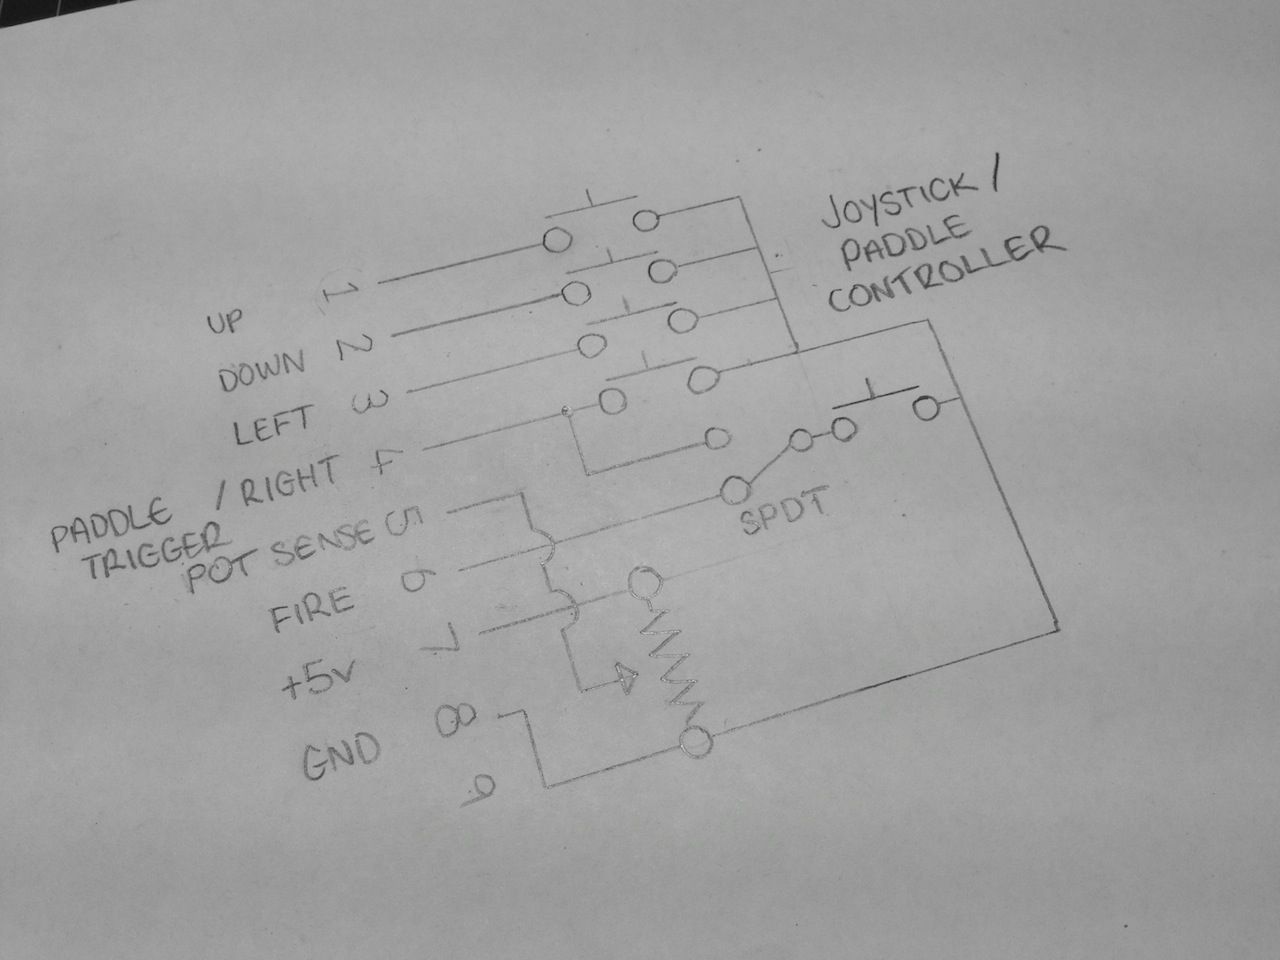 JOYSTICK /
PADDLE
CONTROLLER
UP 1
DOWN 2
LEFT 3
PADDLE / RIGHT 4
TRIGGER
POT SENSE 5
FIRE 6
SPDT
+5v 7
GND 8
9